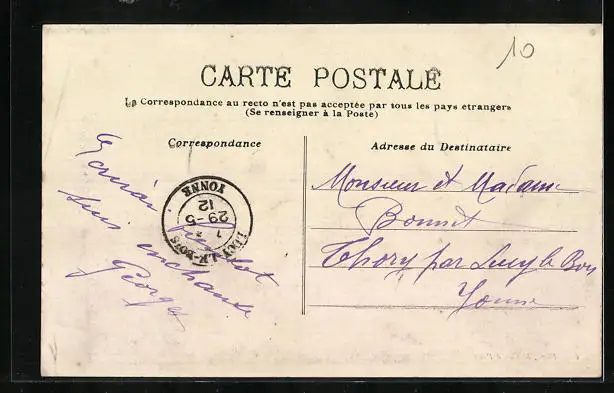 10
CARTE POSTALE
La Correspondance au recto n'est pas acceptée par tous les pays etrangers
(Se renseigner à la Poste)
Correspondance
Adresse du Destinataire
suis enchanté
Georges
LUCY-LE-BOIS
29-5
12
YONNE
Monsieur et Madame
Bonnet
Thory par Lucy le Bois
Yonne